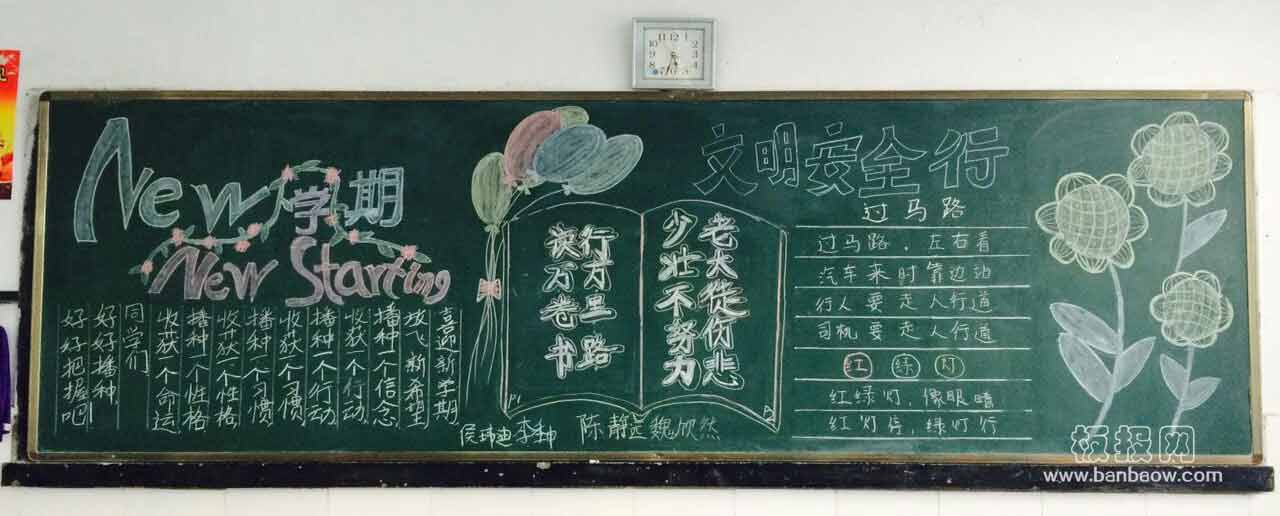 New 学期
New Starting
喜迎新学期
放飞新希望
播种一个信念
收获一个行动
播种一个行动
收获一个习惯
播种一个习惯
收获一个性格
播种一个性格
收获一个命运
同学们
好好播种
好好把握吧!
读万卷书
行万里路
少壮不努力
老大徒伤悲
P1
陈静 魏欣然
文明安全行
过马路
过马路，左右看
汽车来时靠边站
行人要走人行道
司机要走人行道
红 绿 灯
红绿灯，像眼睛
红灯停，绿灯行
板报网
www.banbaow.com